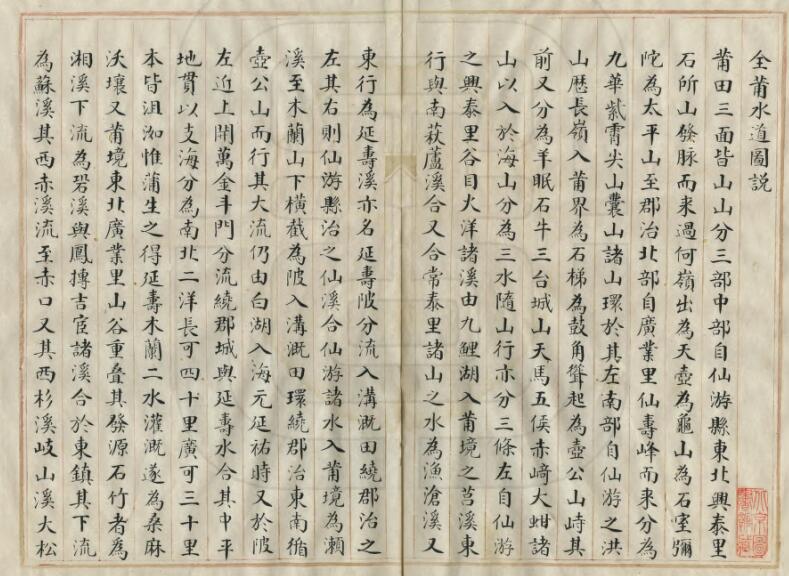 全莆水道圖説
莆田三面皆山山分三部中部自仙游縣東北興泰里
石所山發脉而来過何嶺出為天壺為龜山為石室彌
陀為太平山至郡治北部自廣業里仙壽峰而来分為
九華紫霄尖山囊山諸山環於其左南部自仙游之洪
山歷長嶺入莆界為石梯為鼓角聳起為壺公山峙其
前又分為羊眠石牛三台城山天馬五侯赤﨑大蚶諸
山以入於海山分為三水隨山行亦分三條左自仙游
之興泰里谷目火洋諸溪由九鯉湖入莆境之莒溪東
行與南萩蘆溪合又合常泰里諸山之水為漁滄溪又
東行為延壽溪亦名延壽陂分流入溝溉田繞郡治之
左其右則仙游縣治之仙溪合仙游諸水入莆境為瀨
溪至木蘭山下橫截為陂入溝溉田環繞郡治東南循
壺公山而行其大流仍由白湖入海元延祐時又於陂
左近上開萬金斗門分流繞郡城與延壽水合其中平
地貫以支海分為南北二洋長可四十里廣可三十里
本皆沮洳惟蒲生之得延壽木蘭二水灌溉遂為桑麻
沃壤又莆境東北廣業里山谷重叠其發源石竹者為
湘溪下流為碧溪與鳳摶吉宦諸溪合於東鎮其下流
為蘇溪其西赤溪流至赤口又其西杉溪岐山溪大松